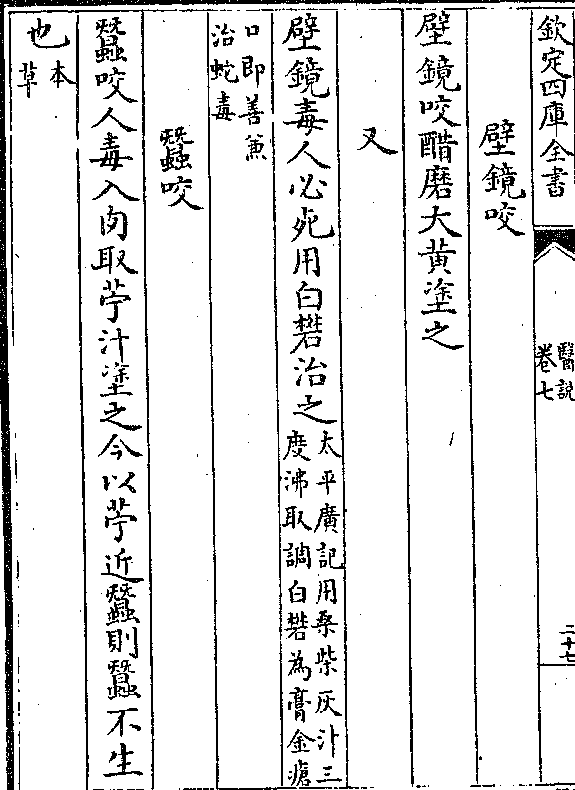 欽定四庫全書
醫說
卷七
二十七
壁鏡咬
壁鏡咬醋磨大黃塗之
又
壁鏡毒人必死用白礬治之
太平廣記用桑柴灰汁三
度沸取調白礬為膏金瘡
口即善兼
治蛇毒
蠶咬
蠶咬人毒入肉取苧汁塗之今以苧近蠶則蠶不生
也
本
草